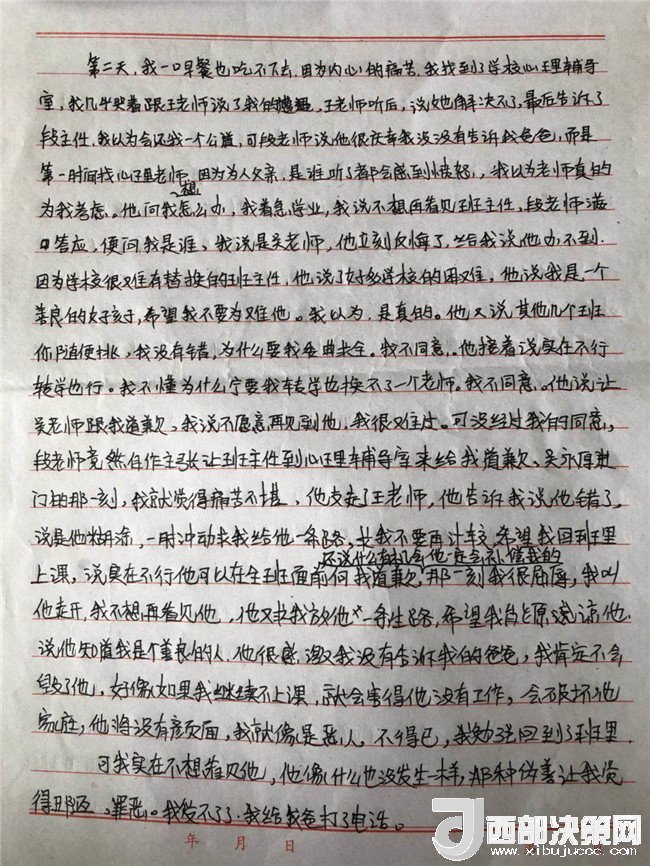 第二天,我一口早餐也吃不下去,因为内心的痛苦,我找到了学校心理辅导
室,我几乎哭着跟王老师说了我的遭遇,王老师听后,说她解决不了,最后告诉了
段主任,我以为会还我一个公道,可段老师说他很庆幸我没没有告诉我爸爸,而是
第一时间找心理老师,因为为人父亲,是谁听了都会感到愤怒,,我以为老师真的
为我考虑。他问我想怎么办,我着急学业,我说不想再看见班主任,段老师满
口答应,便问我是谁、我说是吴老师,他立刻反悔了,给我说他办不到.
因为学校很难有替换的班主任,他说了好多学校的困难,他说我是一个
善良的好孩子,希望我不要为难他。我以为.是真的。他又说其他几个班
你随便挑,我没有错,为什么要我委曲求全。我不同意.他接着说实在不行
转学也行。我不懂为什么宁要我转学也换不了一个老师。我不同意。他说让
吴老师跟我道歉,我说不愿意再见到他,我很难过。可没经过我的同意,
段老师竟然自作主张让班主任到心理辅导室来给我道歉、吴永厚进
门的那一刻,我就觉得痛苦不堪,他支走了王老师,他告诉我说他错了,
说是他糊涂,一时冲动求我给他一条路.求我不要再计较,希望我回到班里
还说什么有机会他一定会补偿我的
上课,说实在不行他可以在全班面前向我道歉,那一刻我很屈辱,我叫
他走开,我不想再看见他,他又求我放他一条生路,希望我能原谅他.
说他知道我是个善良的人、他很感激我没有告诉我的爸爸,我肯定不会
毁了他,好像如果我继续不上课,就会害得他没有工作,会破坏他
家庭,他将没有颜面,我就像是恶人,不得已,我勉强回到了班里.
可我实在不想看见他,他像什么也没发生一样,那种伪善让我觉
得邪恶、罪恶。我受不了.我给我爸打了电话。
年 月 日
西部决策网
www.xibujuece.com